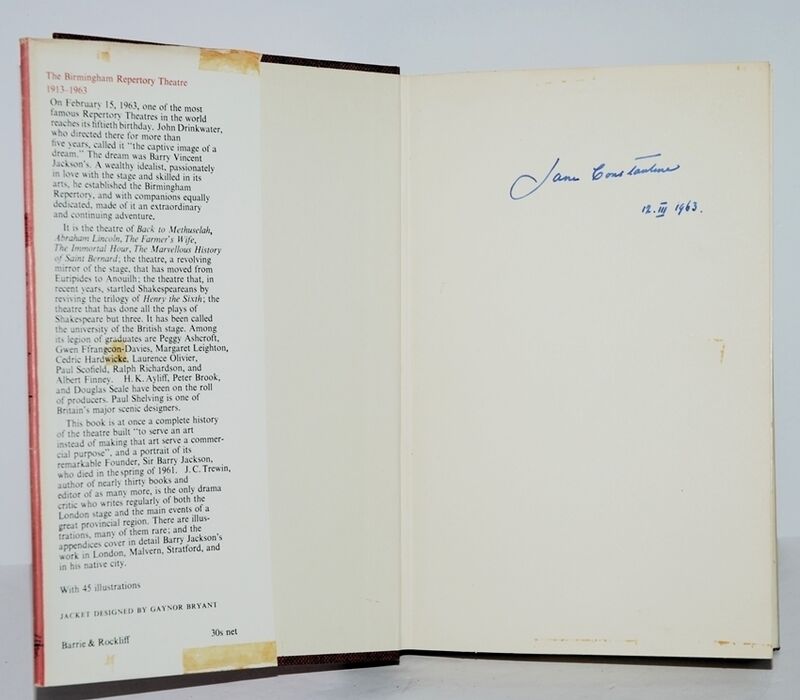 The Birmingham Repertory Theatre
1913–1963
On February 15, 1963, one of the most
famous Repertory Theatres in the world
reaches its fiftieth birthday. John Drinkwater,
who directed there for more than
five years, called it "the captive image of a
dream." The dream was Barry Vincent
Jackson's. A wealthy idealist, passionately
in love with the stage and skilled in its
arts, he established the Birmingham
Repertory, and with companions equally
dedicated, made of it an extraordinary
and continuing adventure.
It is the theatre of Back to Methuselah,
Abraham Lincoln, The Farmer's Wife,
The Immortal Hour, The Marvellous History
of Saint Bernard; the theatre, a revolving
mirror of the stage, that has moved from
Euripides to Anouilh; the theatre that, in
recent years, startled Shakespeareans by
reviving the trilogy of Henry the Sixth; the
theatre that has done all the plays of
Shakespeare but three. It has been called
the university of the British stage. Among
its legion of graduates are Peggy Ashcroft,
Gwen Ffrangcon-Davies, Margaret Leighton,
Cedric Hardwicke, Laurence Olivier,
Paul Scofield, Ralph Richardson, and
Albert Finney. H. K. Ayliff, Peter Brook,
and Douglas Seale have been on the roll
of producers. Paul Shelving is one of
Britain's major scenic designers.
This book is at once a complete history
of the theatre built "to serve an art
instead of making that art serve a commer-
cial purpose", and a portrait of its
remarkable Founder, Sir Barry Jackson,
who died in the spring of 1961. J. C. Trewin,
author of nearly thirty books and
editor of as many more, is the only drama
critic who writes regularly of both the
London stage and the main events of a
great provincial region. There are illus-
trations, many of them rare; and the
appendices cover in detail Barry Jackson's
work in London, Malvern, Stratford, and
in his native city.
With 45 illustrations
JACKET DESIGNED BY GAYNOR BRYANT
Barrie & Rockliff 30s net
Jane Constantine
12. III 1963.